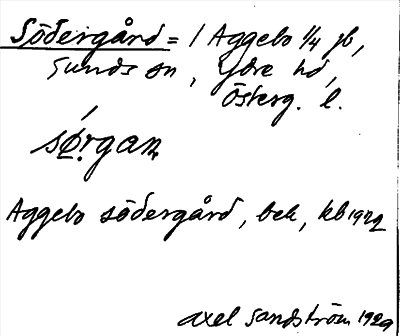 Södergård = / Aggebo 1/4 jb,
Sunds sn, Ydre hd,
Österg. l.
sø̜rgan
Aggebo södergård, beb, kb 1929
Axel Sandström 1929